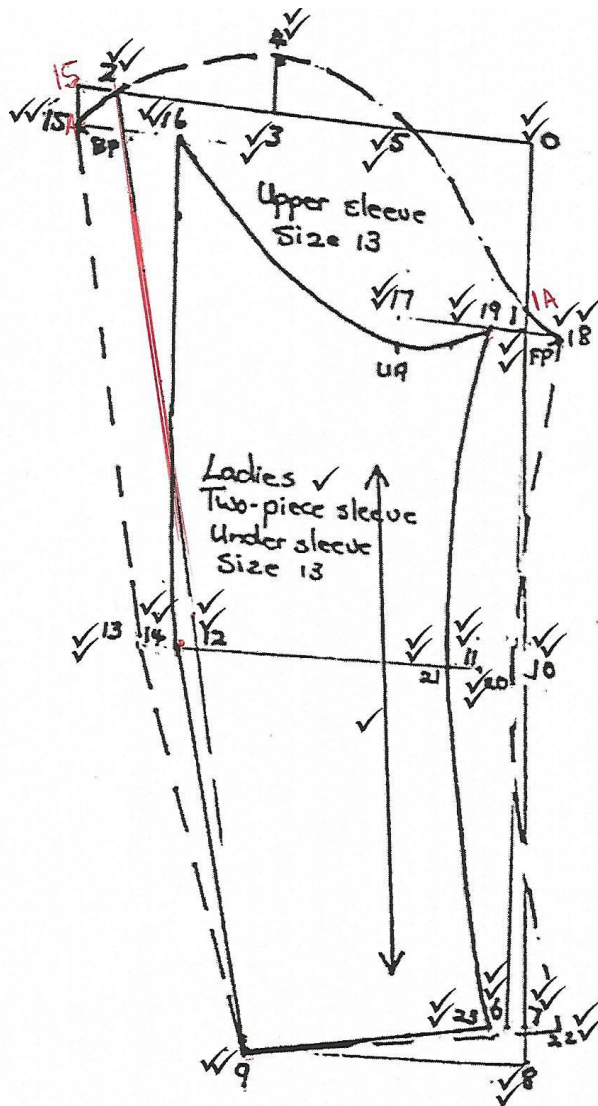 4
15 2
15A 16 3 5 0
BP
Upper sleeve
Size 13
1A
17 19 1 18
FP
UA
Ladies
Two-piece sleeve
Under sleeve
Size 13
13 14 12 11 10
21 20
23 6 7 22
9 8